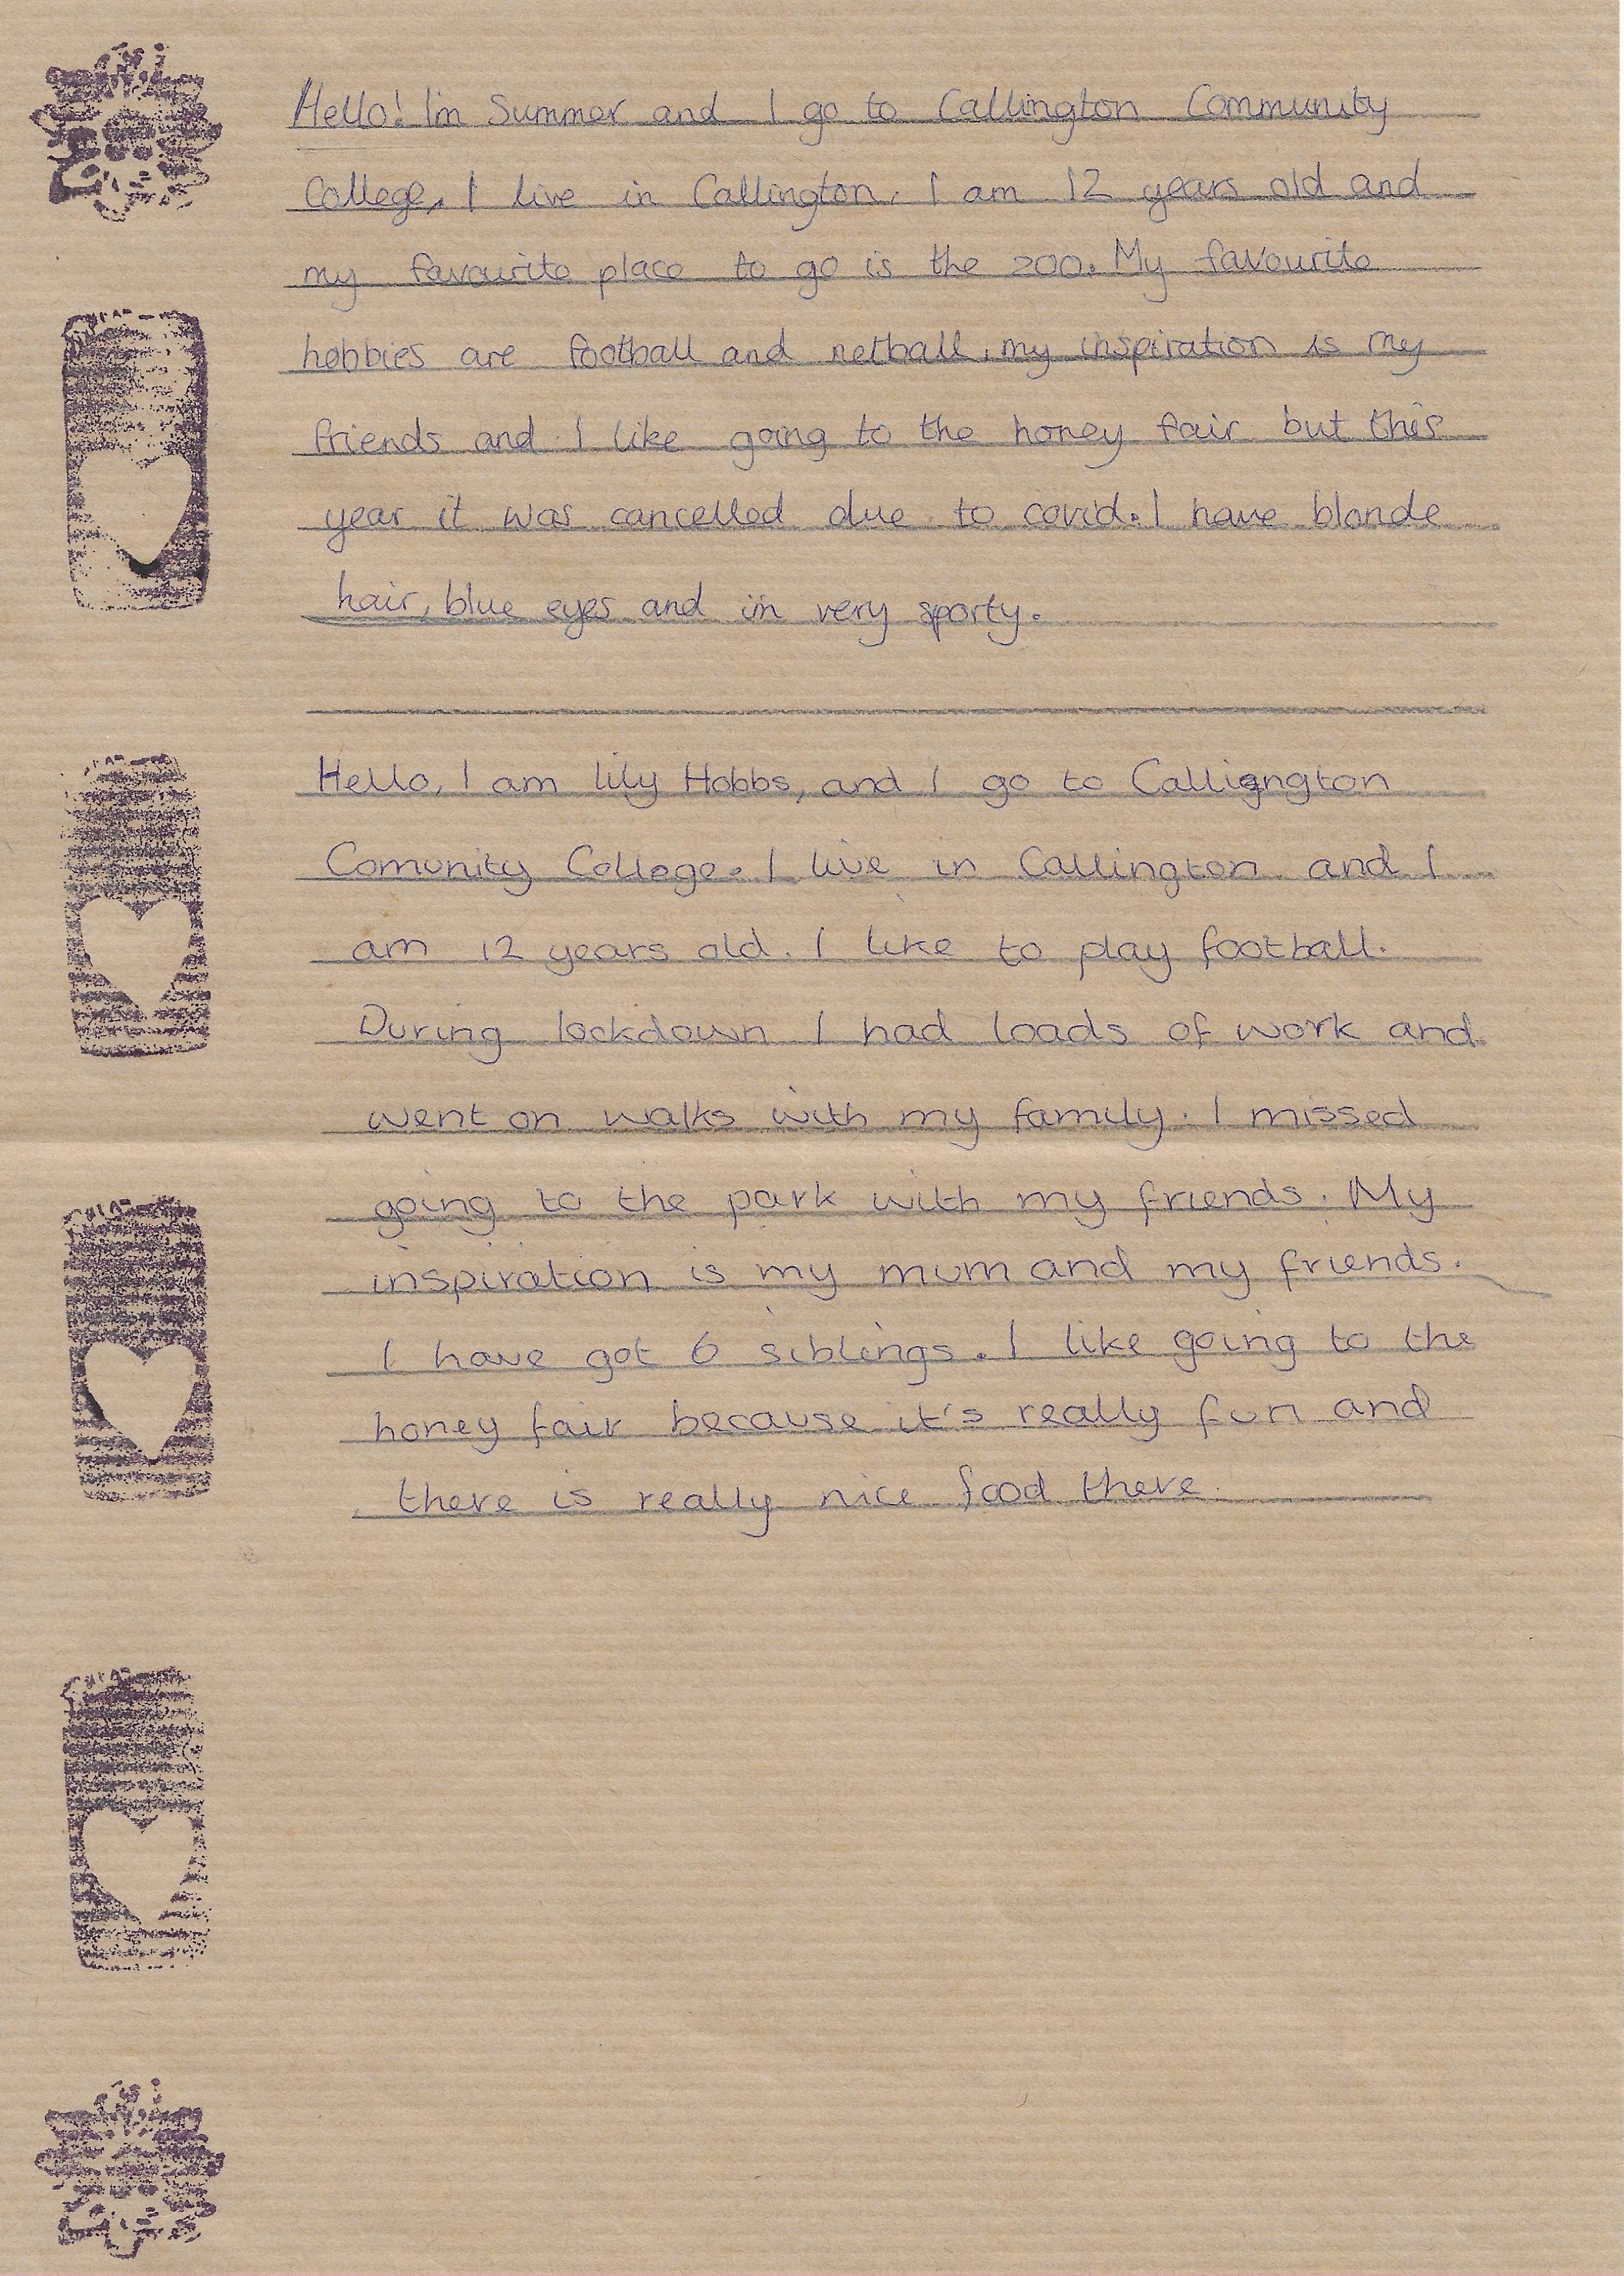 Hello! I'm Summer and I go to Callington Community
College, I live in Callington. I am 12 years old and
my favourite place to go is the zoo. My favourite
hobbies are football and netball, my inspiration is my
friends and I like going to the honey fair but this
year it was cancelled due to covid. I have blonde
hair, blue eyes and i'm very sporty.
Hello, I am lily Hobbs, and I go to Calligngton
Comunity College. I live in Callington and I
am 12 years old. I like to play football.
During lockdown I had loads of work and
went on walks with my family. I missed
going to the park with my friends. My
inspiration is my mum and my friends.
I have got 6 siblings. I like going to the
honey fair because it's really fun and
there is really nice food there.